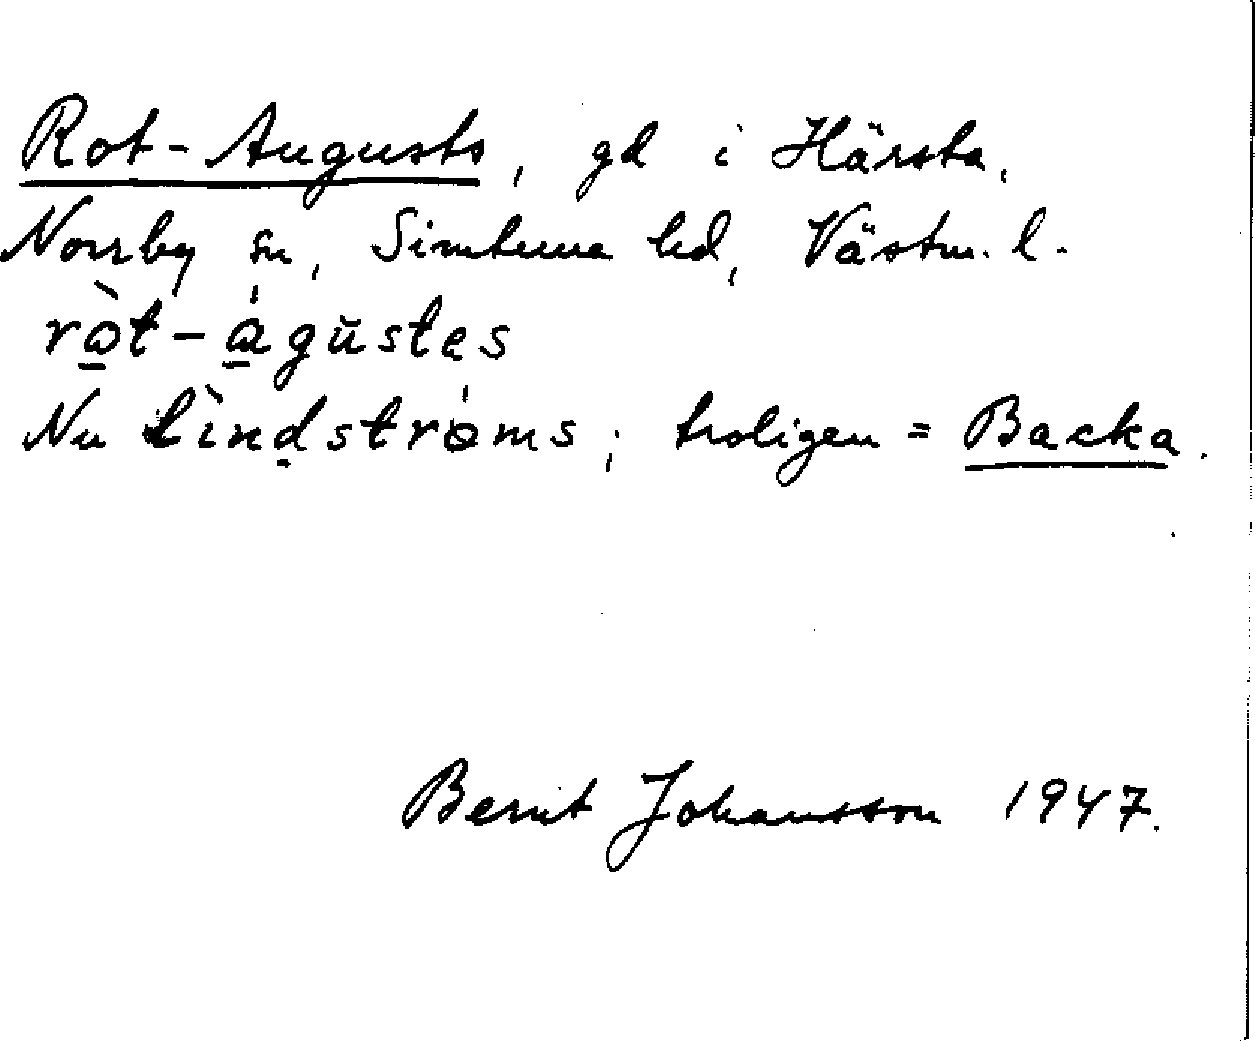 Rot-Augusts, gd i Härsta,
Norrby sn, Simtuna hd, Västm. l.
ròt-ágŭstes
Nu Lìndstróms; troligen = Backa.
Bernt Johansson 1947.